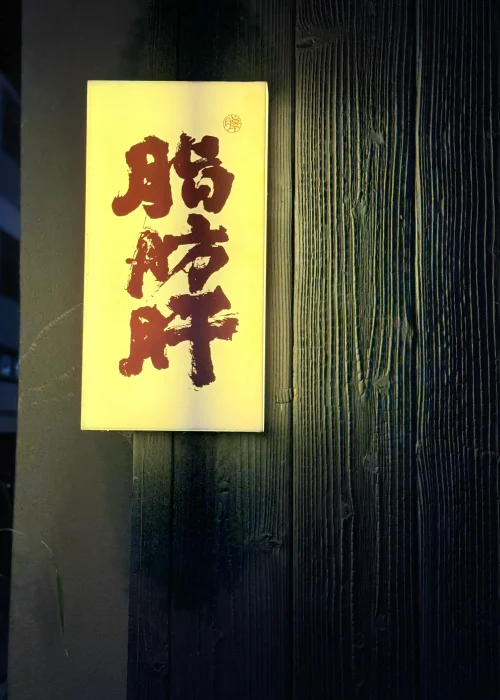 脂肪肝